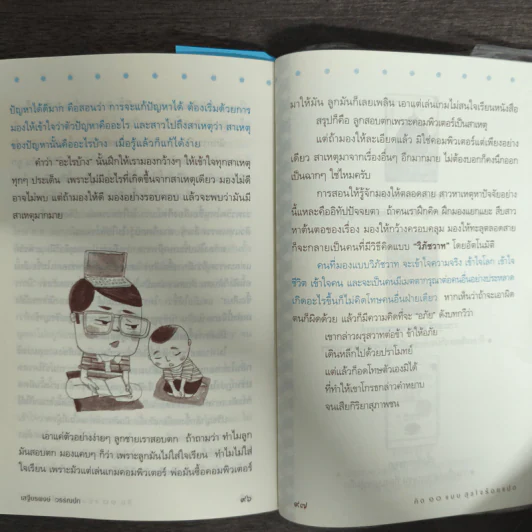 ปัญหาได้ดีมาก คือสอนว่า การจะแก้ปัญหาได้ ต้องเริ่มด้วยการ
มองให้เข้าใจว่าตัวปัญหาคืออะไร และสาวไปถึงสาเหตุว่า สาเหตุ
ของปัญหานั้นคืออะไรบ้าง เมื่อรู้แล้วก็แก้ได้ง่าย
คำว่า "อะไรบ้าง" นั้นฝึกให้เรามองกว้างๆ ให้เข้าใจทุกสาเหตุ
ทุกๆ ประเด็น เพราะไม่มีอะไรที่เกิดขึ้นจากสาเหตุเดียว มองไม่ดี
อาจไม่พบ แต่ถ้ามองให้ดี มองอย่างรอบคอบ แล้วจะพบว่ามันมี
สาเหตุมากมาย
เอาแค่ตัวอย่างง่ายๆ ลูกชายเราสอบตก ถ้าถามว่า ทำไมลูก
มันสอบตก มองแคบๆ ก็ว่า เพราะลูกมันไม่ใส่ใจเรียน ทำไมไม่ใส่
ใจเรียน เพราะมัวแต่เล่นเกมคอมพิวเตอร์ พ่อมันซื้อคอมพิวเตอร์
เสฐียรพงษ์ วรรณปก
๙๖
มาให้มัน ลูกมันก็เลยเพลิน เอาแต่เล่นเกมไม่สนใจเรียนหนังสือ
สรุปก็คือ ลูกสอบตกเพราะคอมพิวเตอร์เป็นสาเหตุ
แต่ถ้ามองให้ละเอียดแล้ว มิใช่คอมพิวเตอร์แต่เพียงอย่าง
เดียว สาเหตุมาจากเรื่องอื่นๆ อีกมากมาย ไม่ต้องบอกก็คงนึกออก
เป็นฉากๆ ใช่ไหมครับ
การสอนให้รู้จักมองให้ตลอดสาย สาวหาเหตุหาปัจจัยอย่าง
นี้แหละคืออิทัปปัจจยตา ถ้าคนเราฝึกคิด ฝึกมองแยกแยะ สืบสาว
หาต้นตอของเรื่อง มองให้กว้างครอบคลุม มองให้ทะลุตลอดสาย
ก็จะกลายเป็นคนที่มีวิธีคิดแบบ "วิภัชวาท" โดยอัตโนมัติ
คนที่มองแบบวิภัชวาท จะเข้าใจความจริง เข้าใจโลก เข้าใจ
ชีวิต เข้าใจคน และจะเป็นคนมีเมตตากรุณาต่อคนอื่นอย่างประหลาด
เกิดอะไรขึ้นก็ไม่คิดโทษคนอื่นฝ่ายเดียว หากเห็นว่าถ้าจะเอาผิด
ตนก็ผิดด้วย แล้วก็มีความคิดที่จะ "อภัย" ดังบทกวีว่า
เขากล่าวผรุสวาทต่อข้า ข้าให้อภัย
เดินหลีกไปด้วยปราโมทย์
แต่แล้วก็อดโทษตัวเองมิได้
ที่ทำให้เขาโกรธกล่าวคำหยาบ
จนเสียกิริยาสุภาพชน
๙๗
คิด ๑๐ แบบ